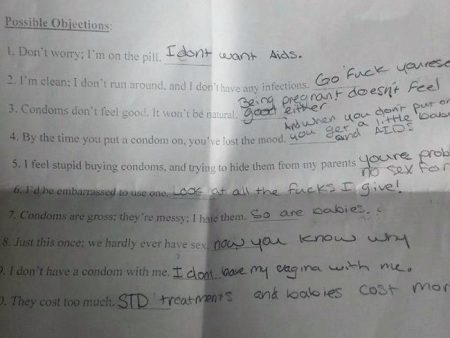 Possible Objections:
1. Don't worry; I'm on the pill. I dont want Aids.
2. I'm clean; I don't run around, and I don't have any infections. Go Fuck
Being pregnant doesn't feel
3. Condoms don't feel good. It won't be natural. good either
And when you don't put on
4. By the time you put a condom on, you've lost the mood. you get a little
and AIDS
5. I feel stupid buying condoms, and trying to hide them from my parents youre
no sex for
6. I'd be embarrassed to use one. Look at all the fucks I give!
7. Condoms are gross; they're messy; I hate them. So are babies.
8. Just this once; we hardly ever have sex. now you know why
9. I don't have a condom with me. I dont have my vagina with me.
. They cost too much. STD treatments and babies cost